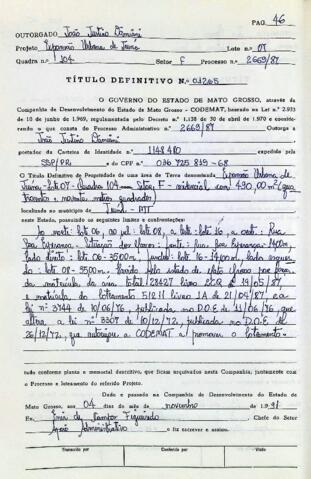 PAG. 46
OUTORGADO João Justino Damiani
Projeto Expansão Urbana de Lote n.o 07
Quadra n.o 104 Setor F Processo n.o 2669/87
TÍTULO DEFINITIVO N.o 01265
O GOVERNO DO ESTADO DE MATO GROSSO, através da
Companhia de Desenvolvimento do Estado de Mato Grosso - CODEMAT, baseado na Lei n.o 2.933
de 10 de junho de 1969, regulamentada pelo Decreto n.o 1.138 de 30 de abril de 1970 e considerando
o que consta do Processo Administrativo n.o 2669/87 Outorga a
João Justino Damiani
portador da Carteira de Identidade n.o 1148410 expedida pela
SSP/PR e do CPF n.o 036 725 819-68
O Título Definitivo de Propriedade de uma área de Terra denominada Expansão Urbana de
Lote 07 - Quadra 104 - Setor F - com 490,00 m² (quatrocentos e noventa metros quadrados)
localizada no município de - MT
Neste Estado, possuindo os seguintes limites e confrontações:
ao norte: lote 06, ao sul: lote 08, a leste: lote 16, a oeste: Rua
Boa Esperança. Situação dos frente: Rua Boa Esperança 14,00m,
lado direito: lote 06 - 35,00m, fundos: lote 16 - 14,00m, lado esquerdo: lote 08 - 35,00m. pelo estado de Mato Grosso por força
da matrícula da área total 28427 livro 19/05/87,
e matrícula do loteamento 51211 livro 1A de 21/04/87, e a
lei nº 3744 de 10/06/76, publicada no D.O.E de 11/06/76, que
altera a lei nº 3307 de 10/12/72, publicada no D.O.E. de
26/12/72, que autorizou a CODEMAT a promover o loteamento.
tudo conforme planta e memorial descritivo, que ficam arquivados nesta Companhia, juntamente com
o Processo e loteamento do referido Projeto.
Dado e passado na Companhia de Desenvolvimento do Estado de
Mato Grosso, aos 04 dias do mês de novembro de 1991
Eu, de Campos Figueiredo Chefe do Setor
Apoio Administrativo o fiz escrever e assino.
Transcrito por
Conferido por
Visto